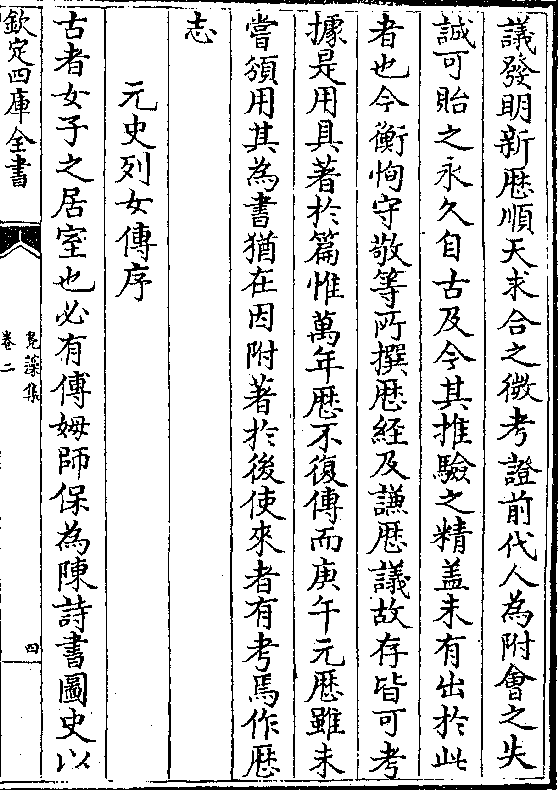 議發明新厯順天求合之微考證前代人為附會之失
誠可貽之永久自古及今其推驗之精盖未有出於此
者也今衡恂守敬等所撰厯經及謙厯議故存皆可考
據是用具著於篇惟萬年厯不復傳而庚午元厯雖未
嘗頒用其為書猶在因附著於後使來者有考焉作厯
志
元史列女傳序
古者女子之居室也必有傅姆師保為陳詩書圖史以
欽定四庫全書
鳬藻集
卷二
四